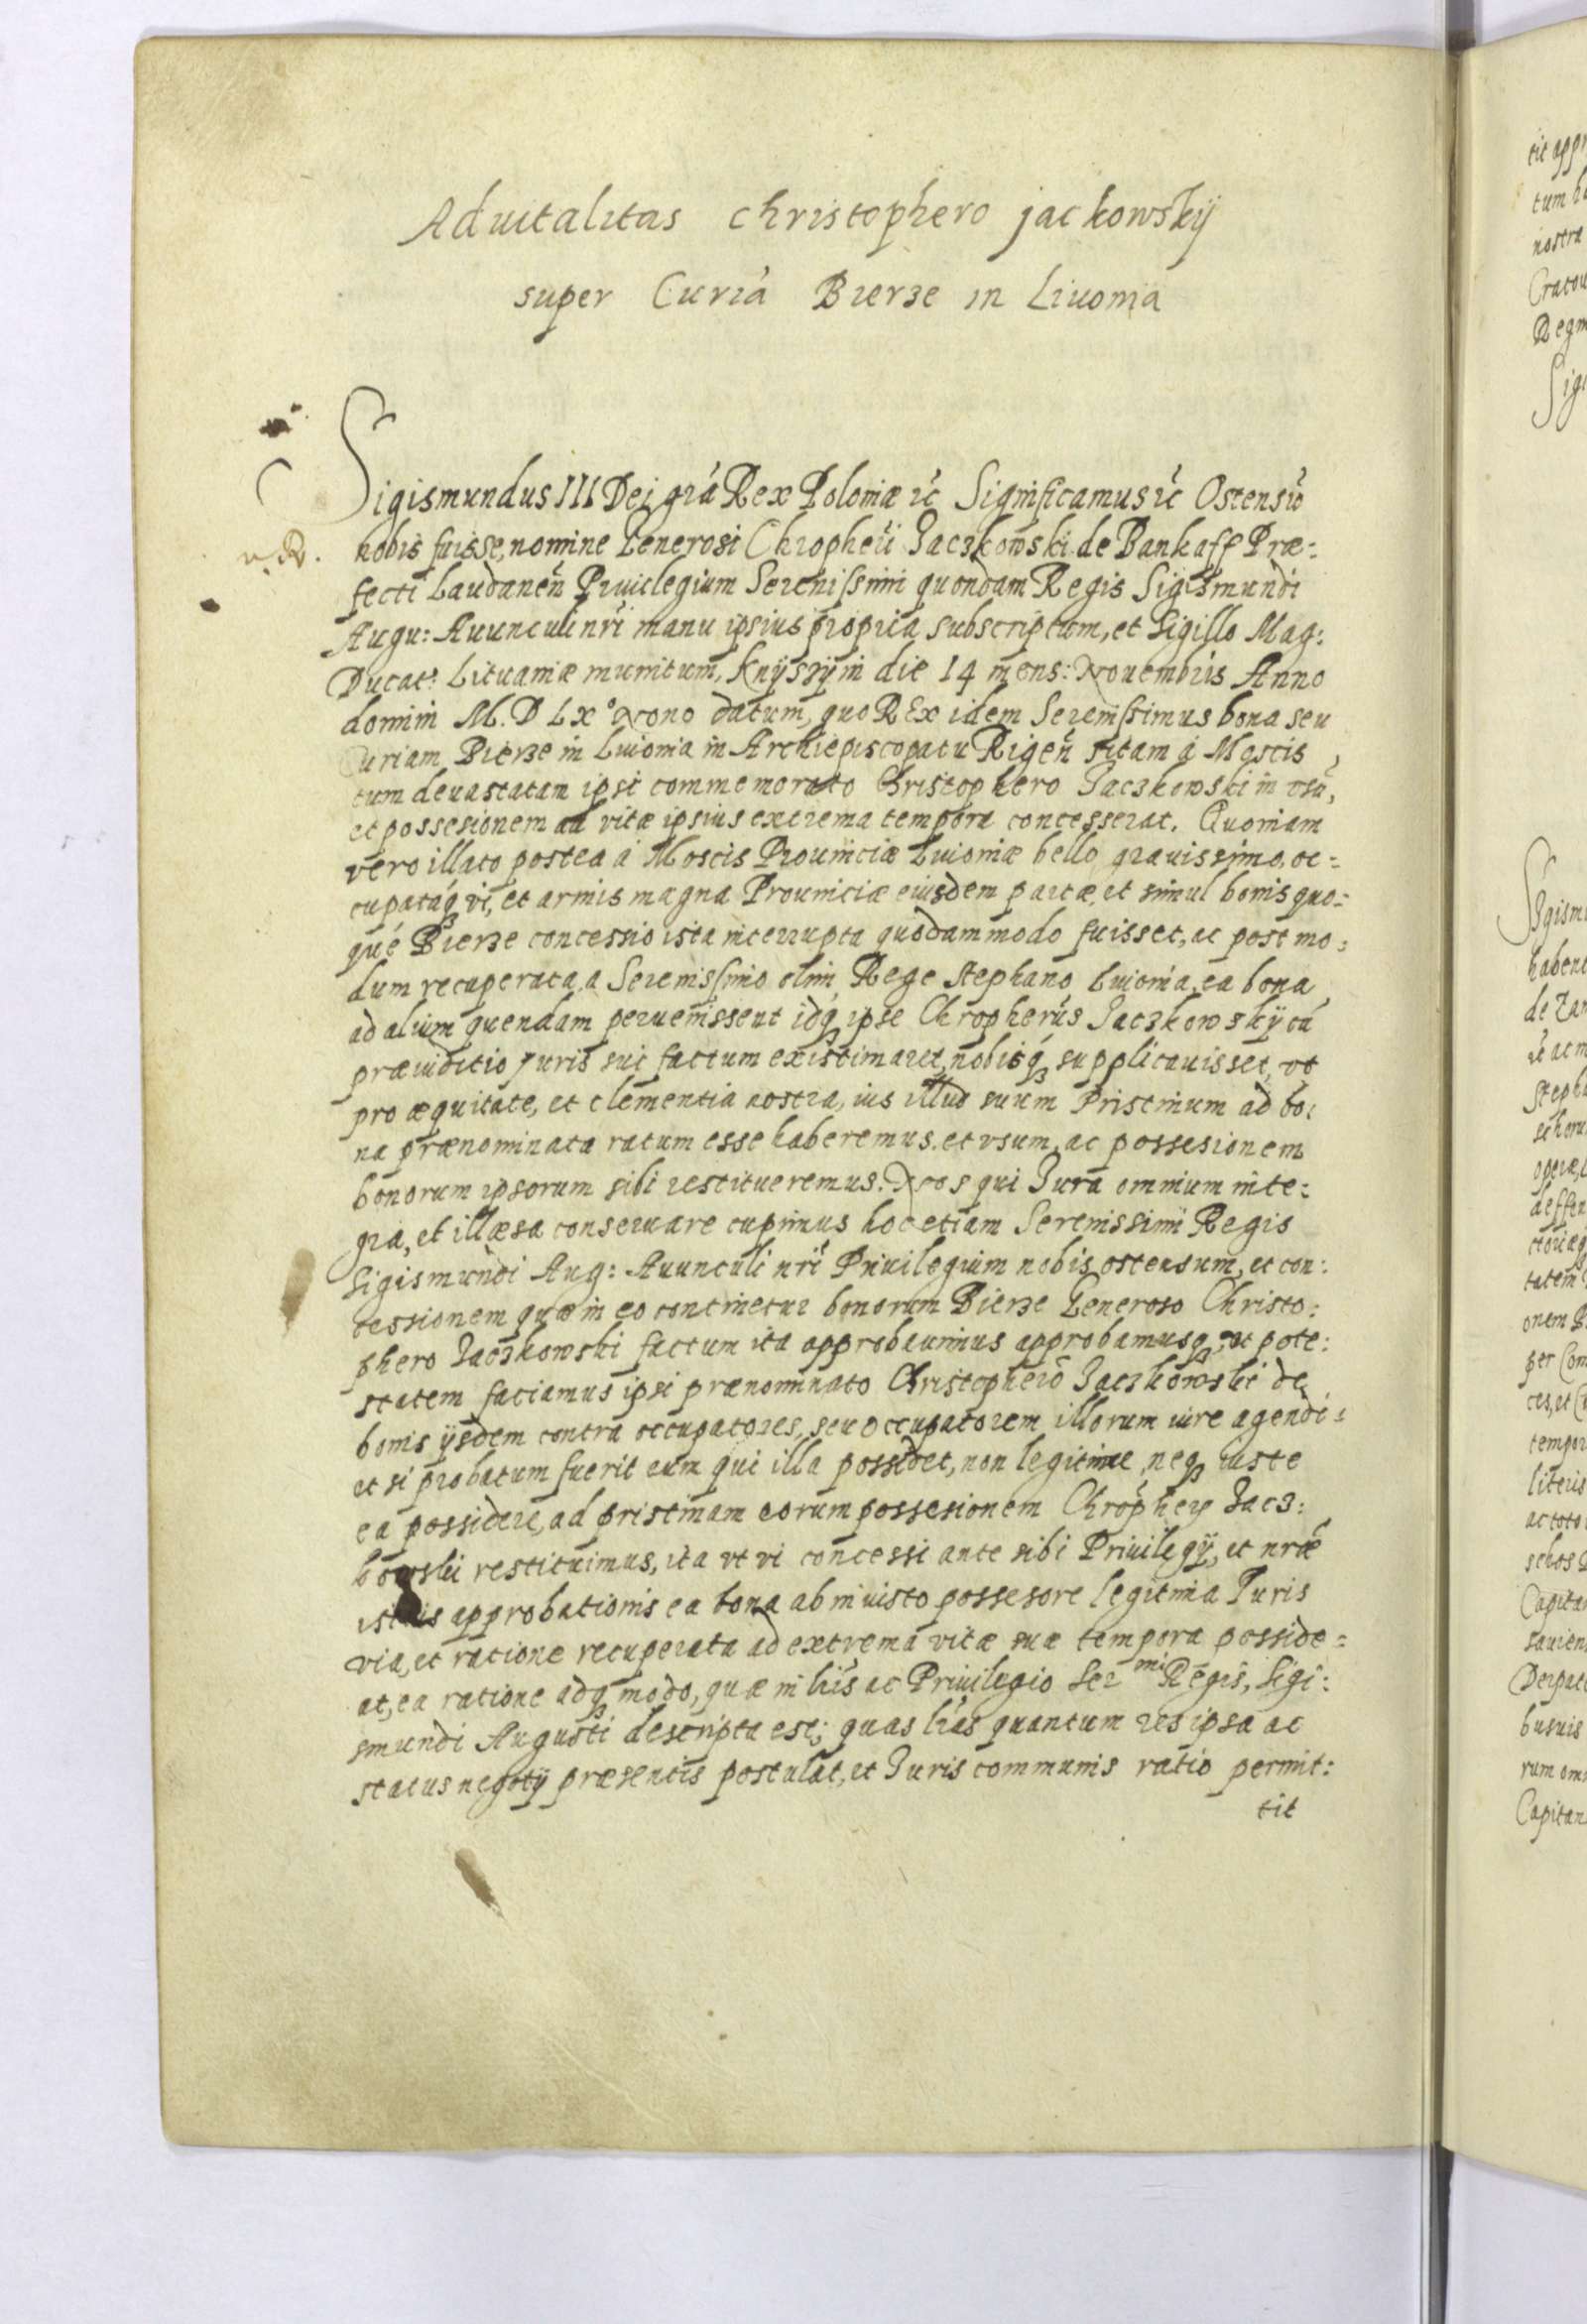 Aduitalitas Christophero jackowskij
super Curiá Bierze in Liuonia
Sigismundus III Dei grá Rex Poloniæ ꝛc̃ Significamus ꝛc̃ Ostensũ
nobis fuisse, nomine Generosi Chropheri Jaczkowski de Bankaff Præ-:
fecti Laudaneñ Priuilegium Serenissimi quondam Regis Sigismundi
Augu: Auunculi nr̃i manu ipsius propria subscriptum, et Sigillo Mag:
Ducat: Lituaniæ munitum, Knijszijni die 14 mens: Nouembris Anno
domini M. D Lx° Nono datum, quo REx idem Serenissimus bona seu
Curiam Bierze in Liuonia in Archiepiscopatu Rigeñ sitam á Moscis
tum deuastatam ipsi commemorato Christophero Jaczkowski in vsũ,
et possesionem ad vitæ ipsius extrema tempora concesserat. Quoniam
vero illato postea á Moscis Prouinciæ Liuoniæ bello grauissimo, oc=
cupatáqꝫ vi, et armis magna Prouinciæ eiusdem partæ, et simul bonis quo-:
qué Bierze concessio ista interrupta quodammodo fuisset, ac post mo:
dum recuperata a Serenissimo olim Rege Stephano Liuonia, ea bona
ad alium quendam peruenissent idqꝫ ipse Chropherus Jaczkowskij cũ
præiuditio Juris sui factum existimaret, nobisqꝫ supplicauisset, vt
pro æquitate, et clementia nostra, ius illud suum Pristinum ad bo:
na prænominata ratum esse haberemus. et vsum, ac possesionem
bonorum ipsorum sibi restitueremus. Nos qui Jura omnium inte:
gra, et illæsa conseruare cupimus hoc etiam Serenissimi Regis
Sigismundi Aug: Auunculi nr̃i Priuilegium nobis ostensum, et con:
cessionem quæ in eo continetur bonorum Bierze Generoso Christo:
phero Jaczkowski factum ita approbauimus approbamusqꝫ, ut pote:
statem faciamus ipsi prænominato Christophero Jaczkowski de
bonis ijsdem contra occupatores, seu occupatorem illorum iure agendi:
et si probatum fuerit eum qui illa possidet, non legitime, neqꝫ iuste
ea possidere, ad pristinam eorum possesionem Chropherj Jacz:
kowski restituimus, ita vt vi concessi ante sibi Priuilegij, et nr̃æ
istius approbationis ea bona ab iniusto possesore legitima Juris
via, et ratione recuperata ad extrema vitæ suæ tempora posside=
at, ea ratione adqꝫ modo, quæ in lr̃is ac Priuilegio Ser mi Regis, Sigi:
smundi Augusti descripta est; quas lr̃as quantum res ipsa ac
status negotij præsentis postulat, et Juris communis ratio permit:
tit